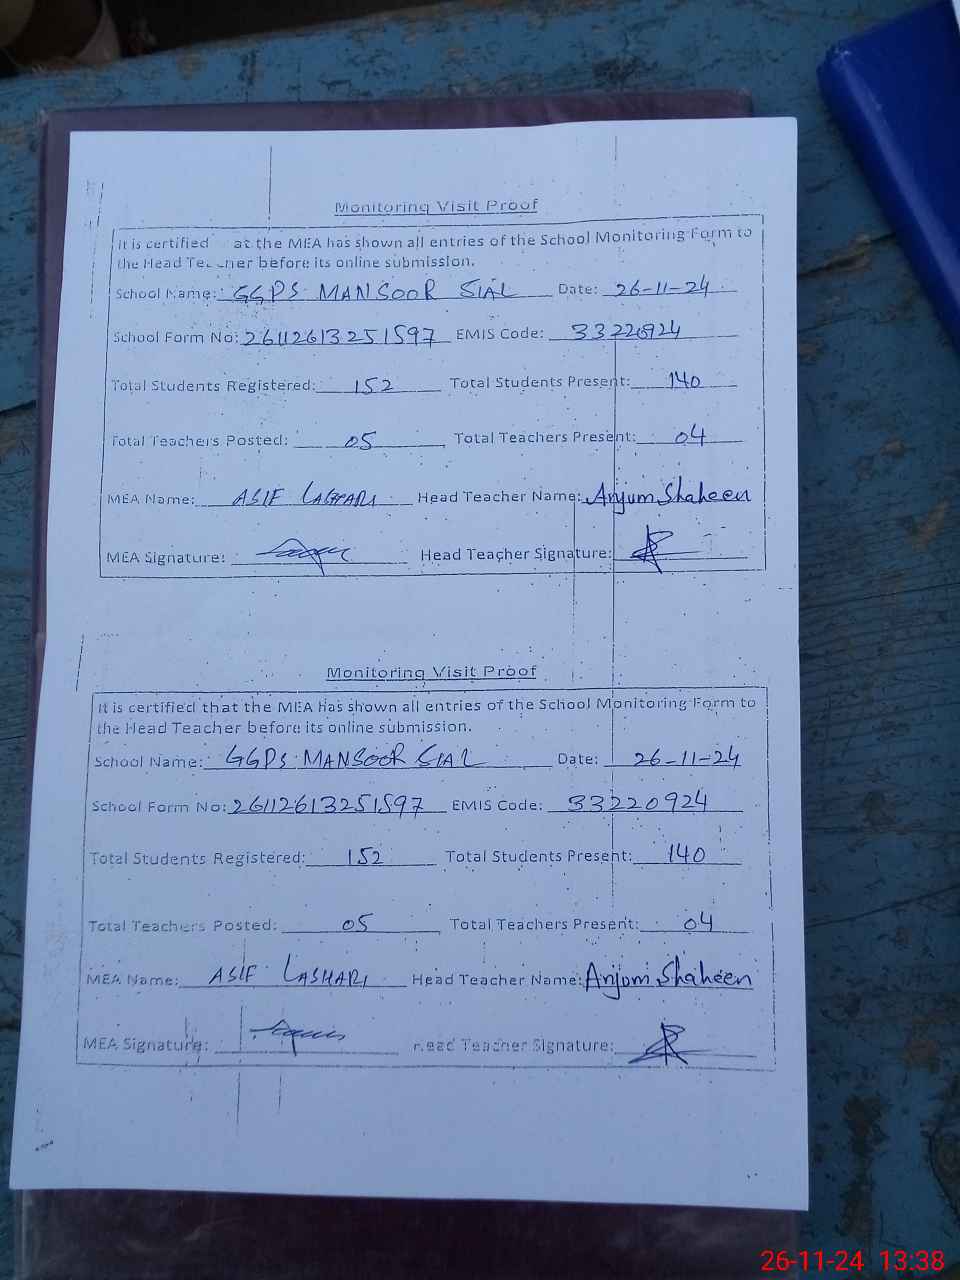 Monitoring Visit Proof
It is certified at the MEA has shown all entries of the School Monitoring Form to
the Head Teacher before its online submission.
School Name: GGPS MANSOOR SIAL Date: 26-11-24
School Form No: 26112613251597 EMIS Code: 33220924
Total Students Registered: 152 Total Students Present: 140
Total Teachers Posted: 05 Total Teachers Present: 04
MEA Name: ASIF LASHARI Head Teacher Name: Anjum Shaheen
MEA Signature: Head Teacher Signature:
Monitoring Visit Proof
It is certified that the MEA has shown all entries of the School Monitoring Form to
the Head Teacher before its online submission.
School Name: GGPS MANSOOR SIAL Date: 26-11-24
School Form No: 26112613251597 EMIS Code: 33220924
Total Students Registered: 152 Total Students Present: 140
Total Teachers Posted: 05 Total Teachers Present: 04
MEA Name: ASIF LASHARI Head Teacher Name: Anjum Shaheen
MEA Signature: Head Teacher Signature:
26-11-24 13:38